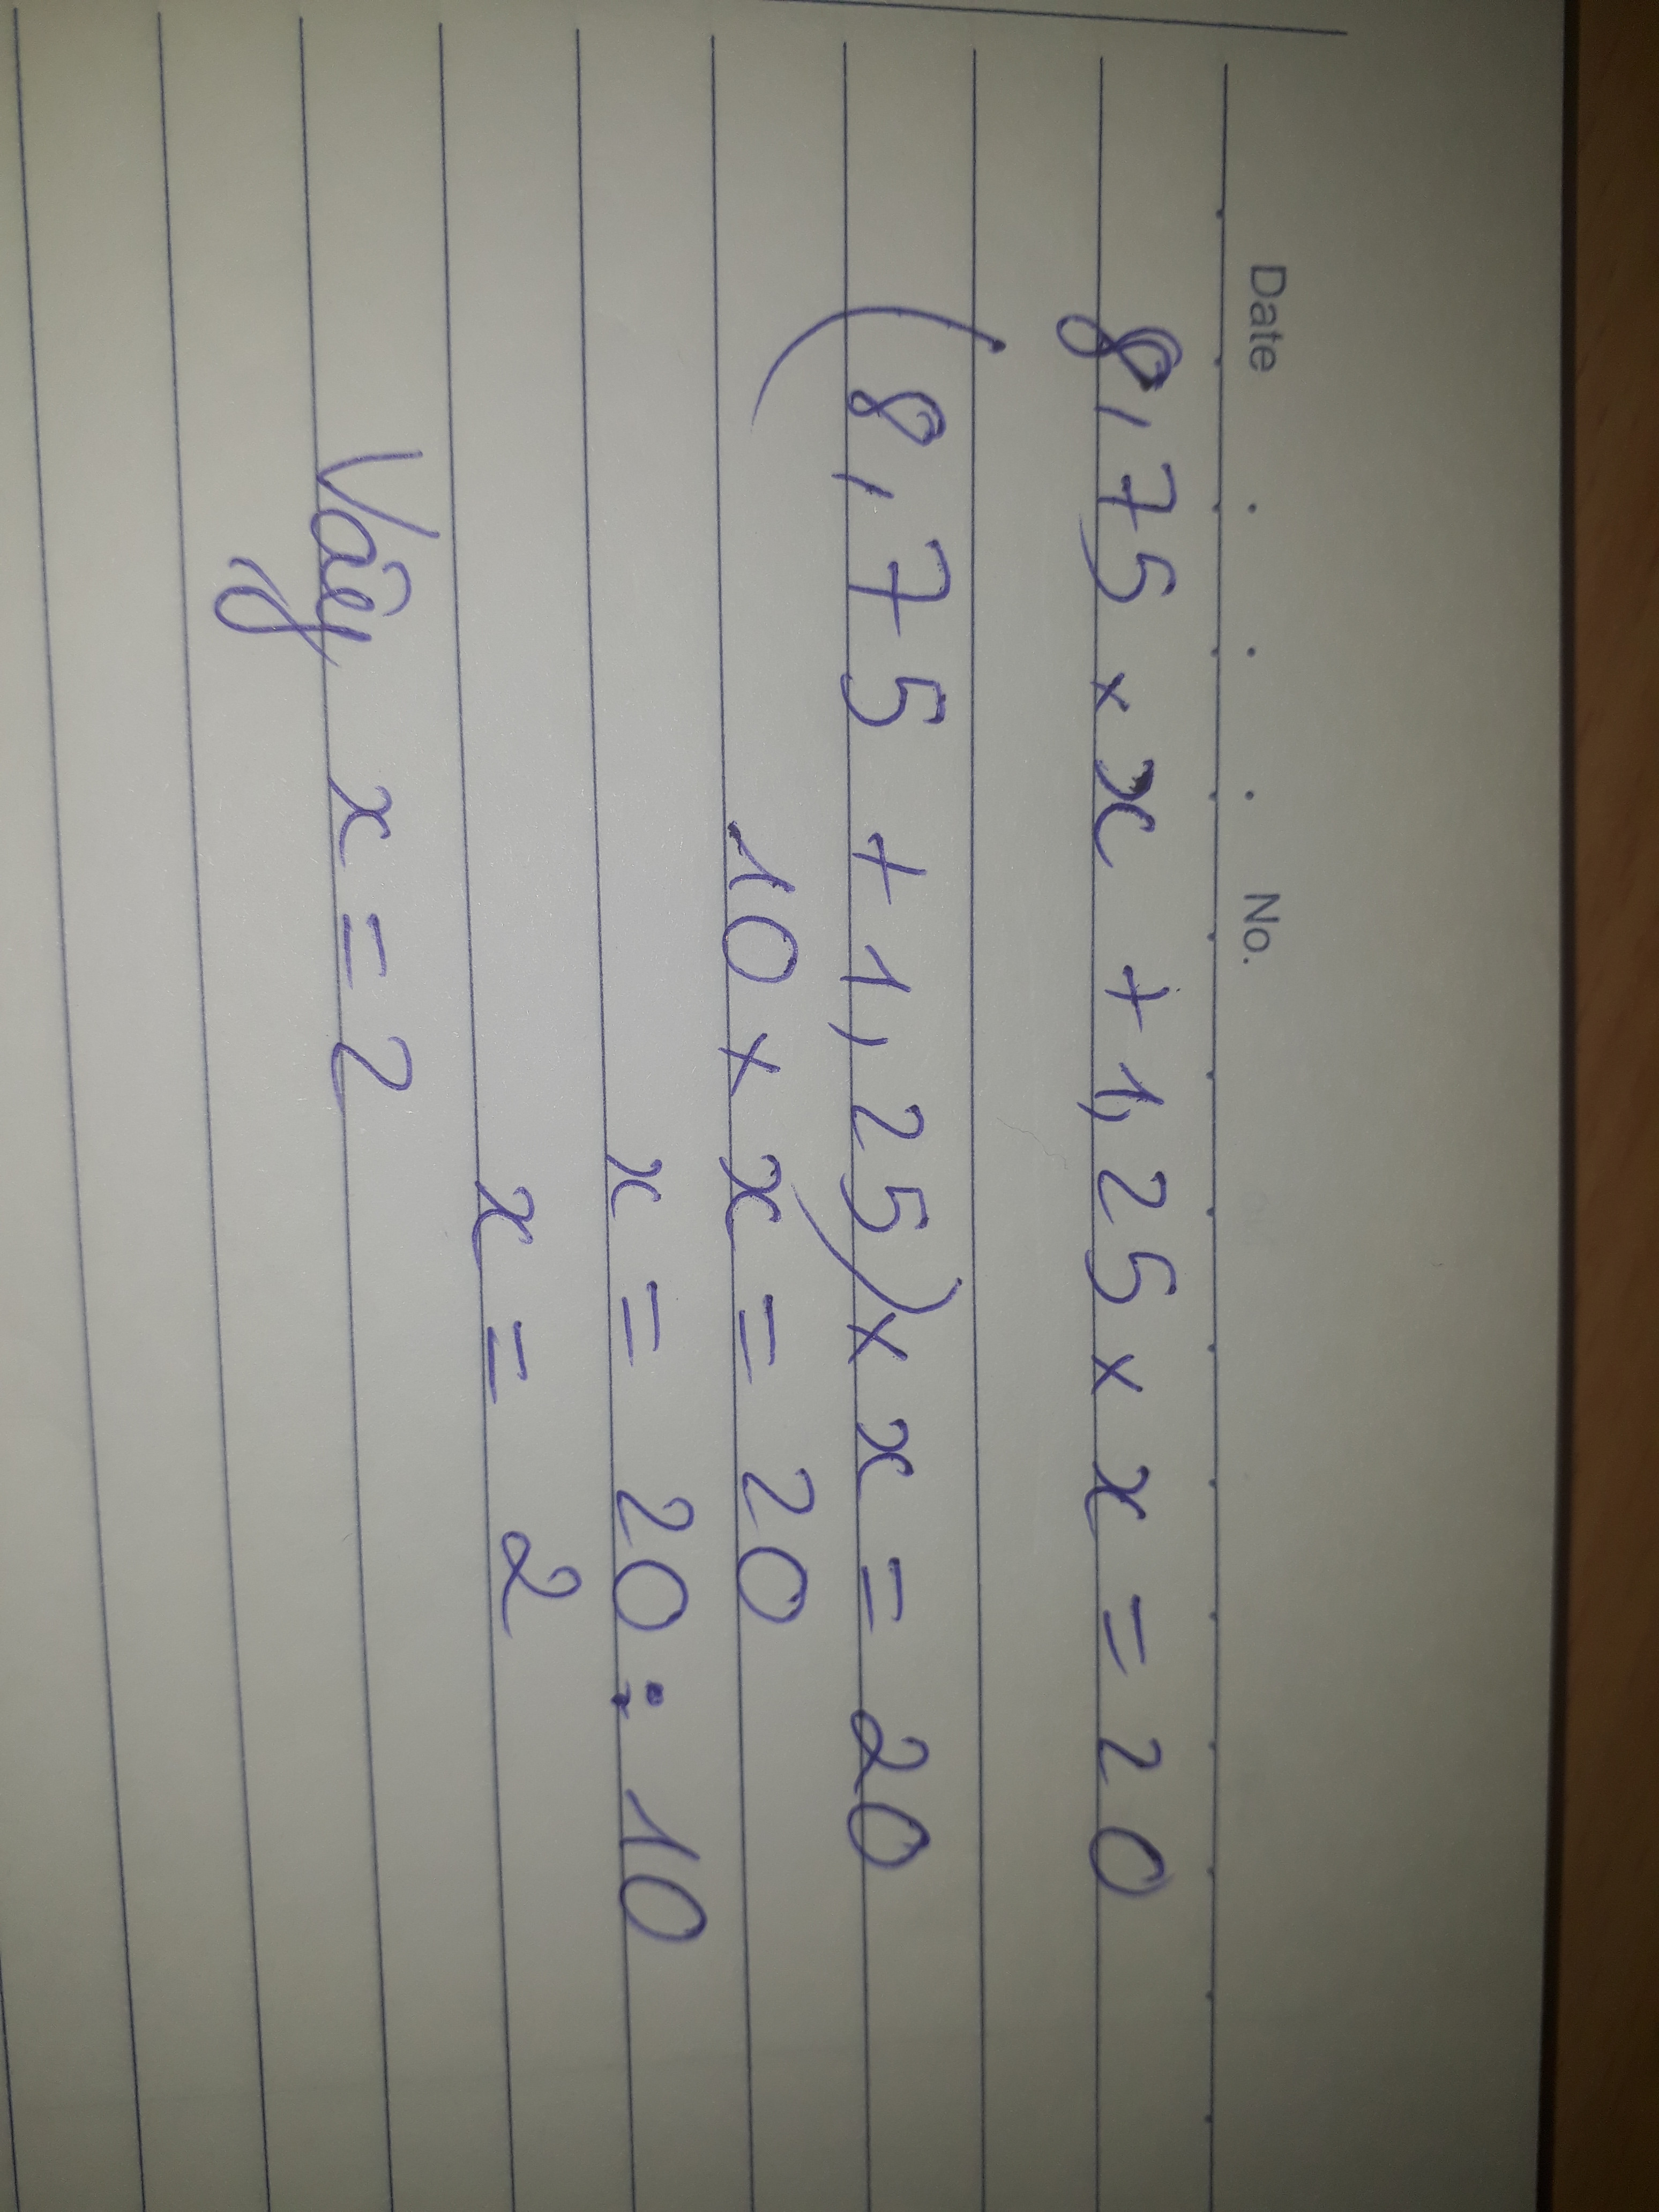 Date . . . No.
8,75 × x + 1,25 × x = 20
(8,75 + 1,25) × x = 20
10 × x = 20
x = 20 : 10
x = 2
Vây x = 2